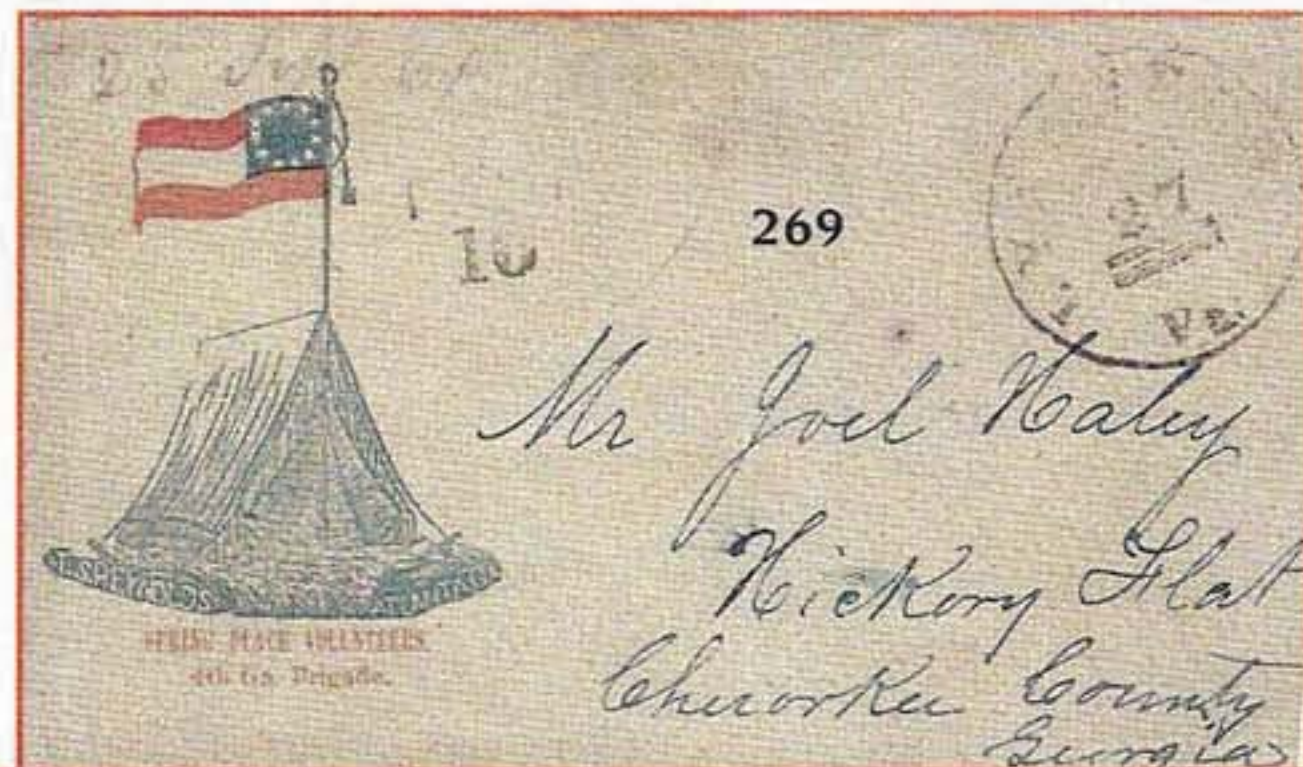 25
10
269
27
Va.
Mr Joel Haley
Hickory Flat
Cherokee County
Georgia
SPRING PLACE VOLUNTEERS,
4th Ga. Brigade.